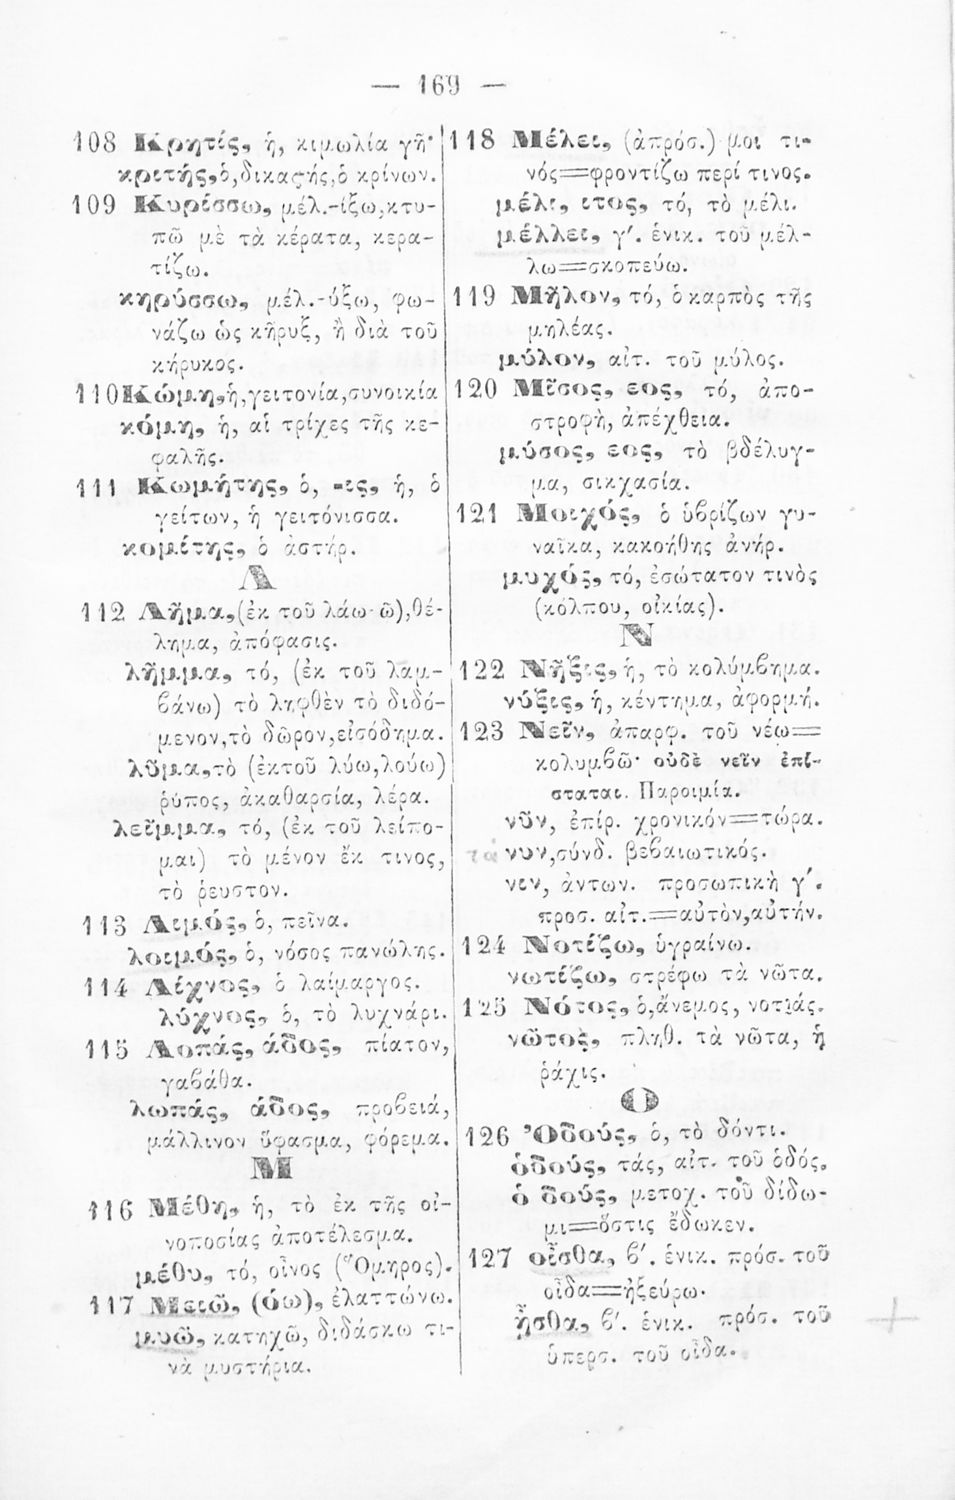 — 169 —
108 Κρητίς, ἡ, κιμωλία γῆ·
κριτής, ὁ, δικαστής, ὁ κρίνων.
109 Κυρίσσω, μέλ.-ίξω, κτυ-
πῶ μὲ τὰ κέρατα, κερα-
τίζω.
κηρύσσω, μέλ.-ύξω, φω-
νάζω ὡς κῆρυξ, ἢ διὰ τοῦ
κήρυκος.
110 Κώμη, ἡ, γειτονία, συνοικία
κόμη, ἡ, αἱ τρίχες τῆς κε-
φαλῆς.
111 Κωμήτης, ὁ, -ις, ἡ, ὁ
γείτων, ἡ γειτόνισσα.
κομίτης, ὁ ἀστήρ.
Λ
112 Λῆμα, (ἐκ τοῦ λάω-ῶ), θέ-
λημα, ἀπόφασις.
λῆμμα, τό, (ἐκ τοῦ λαμ-
βάνω) τὸ ληφθὲν τὸ διδό-
μενον, τὸ δῶρον, εἰσόδημα.
λῦμα, τὸ (ἐκ τοῦ λύω, λούω)
ῥύπος, ἀκαθαρσία, λέρα.
λεῖμμα, τό, (ἐκ τοῦ λείπο-
μαι) τὸ μένον ἔκ τινος,
τὸ ῥευστον.
113 Λιμός, ὁ, πεῖνα.
λοιμός, ὁ, νόσος πανώλης.
114 Λίχνος, ὁ λαίμαργος.
λύχνος, ὁ, τὸ λυχνάρι.
115 Λοπάς, άδος, πίατον,
γαβάθα.
λωπάς, άδος, προβειά,
μάλλινον ὕφασμα, φόρεμα.
Μ
116 Μέθη, ἡ, τὸ ἐκ τῆς οἰ-
νοποσίας ἀποτέλεσμα.
μέθυ, τό, οἶνος (Ὅμηρος).
117 Μειῶ, (όω), ἐλαττώνω.
μυῶ, κατηχῶ, διδάσκω τι-
νὰ μυστήρια.
118 Μέλει, (ἀπρόσ.) μοι τι-
νός=φροντίζω περί τινος.
μέλι, ιτος, τό, τὸ μέλι.
μέλλει, γ΄. ἑνικ. τοῦ μέλ-
λω=σκοπεύω.
119 Μῆλον, τό, ὁ καρπὸς τῆς
μηλέας.
μύλον, αἰτ. τοῦ μύλος.
120 Μῖσος, εος, τό, ἀπο-
στροφὴ, ἀπέχθεια.
μύσος, εος, τὸ βδέλυγ-
μα, σικχασία.
121 Μοιχός, ὁ ὑβρίζων γυ-
ναῖκα, κακοήθης ἀνήρ.
μυχός, τό, ἐσώτατον τινὸς
(κόλπου, οἰκίας).
Ν
122 Νῆξις, ἡ, τὸ κολύμβημα.
νύξις, ἡ, κέντημα, ἀφορμή.
123 Νεῖν, ἀπαρφ. τοῦ νέω=
κολυμβῶ· οὐδὲ νεῖν ἐπί-
σταται. Παροιμία.
νῦν, ἐπίρ. χρονικόν=τώρα.
νυν, σύνδ. βεβαιωτικός.
νιν, ἀντων. προσωπικὴ γ΄.
προσ. αἰτ.=αὐτὸν, αὐτήν.
124 Νοτίζω, ὑγραίνω.
νωτίζω, στρέφω τὰ νῶτα.
125 Νότος, ὁ, ἄνεμος, νοτιάς.
νῶτος, πληθ. τὰ νῶτα, ἡ
ῥάχις.
Ο
126 Ὀδούς, ὁ, τὸ δόντι.
ὁδούς, τάς, αἰτ. τοῦ ὁδός.
ὁ δούς, μετοχ. τοῦ δίδω-
μι=ὅστις ἔδωκεν.
127 οἶσθα, β΄. ἑνικ. πρόσ. τοῦ
οἶδα=ἠξεύρω.
ᾖσθα, β΄. ἑνικ. πρόσ. τοῦ
ὑπερσ. τοῦ οἶδα.